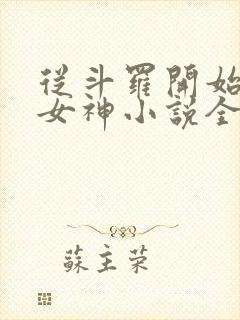 從斗羅開始
女神小說全
蘇主榮